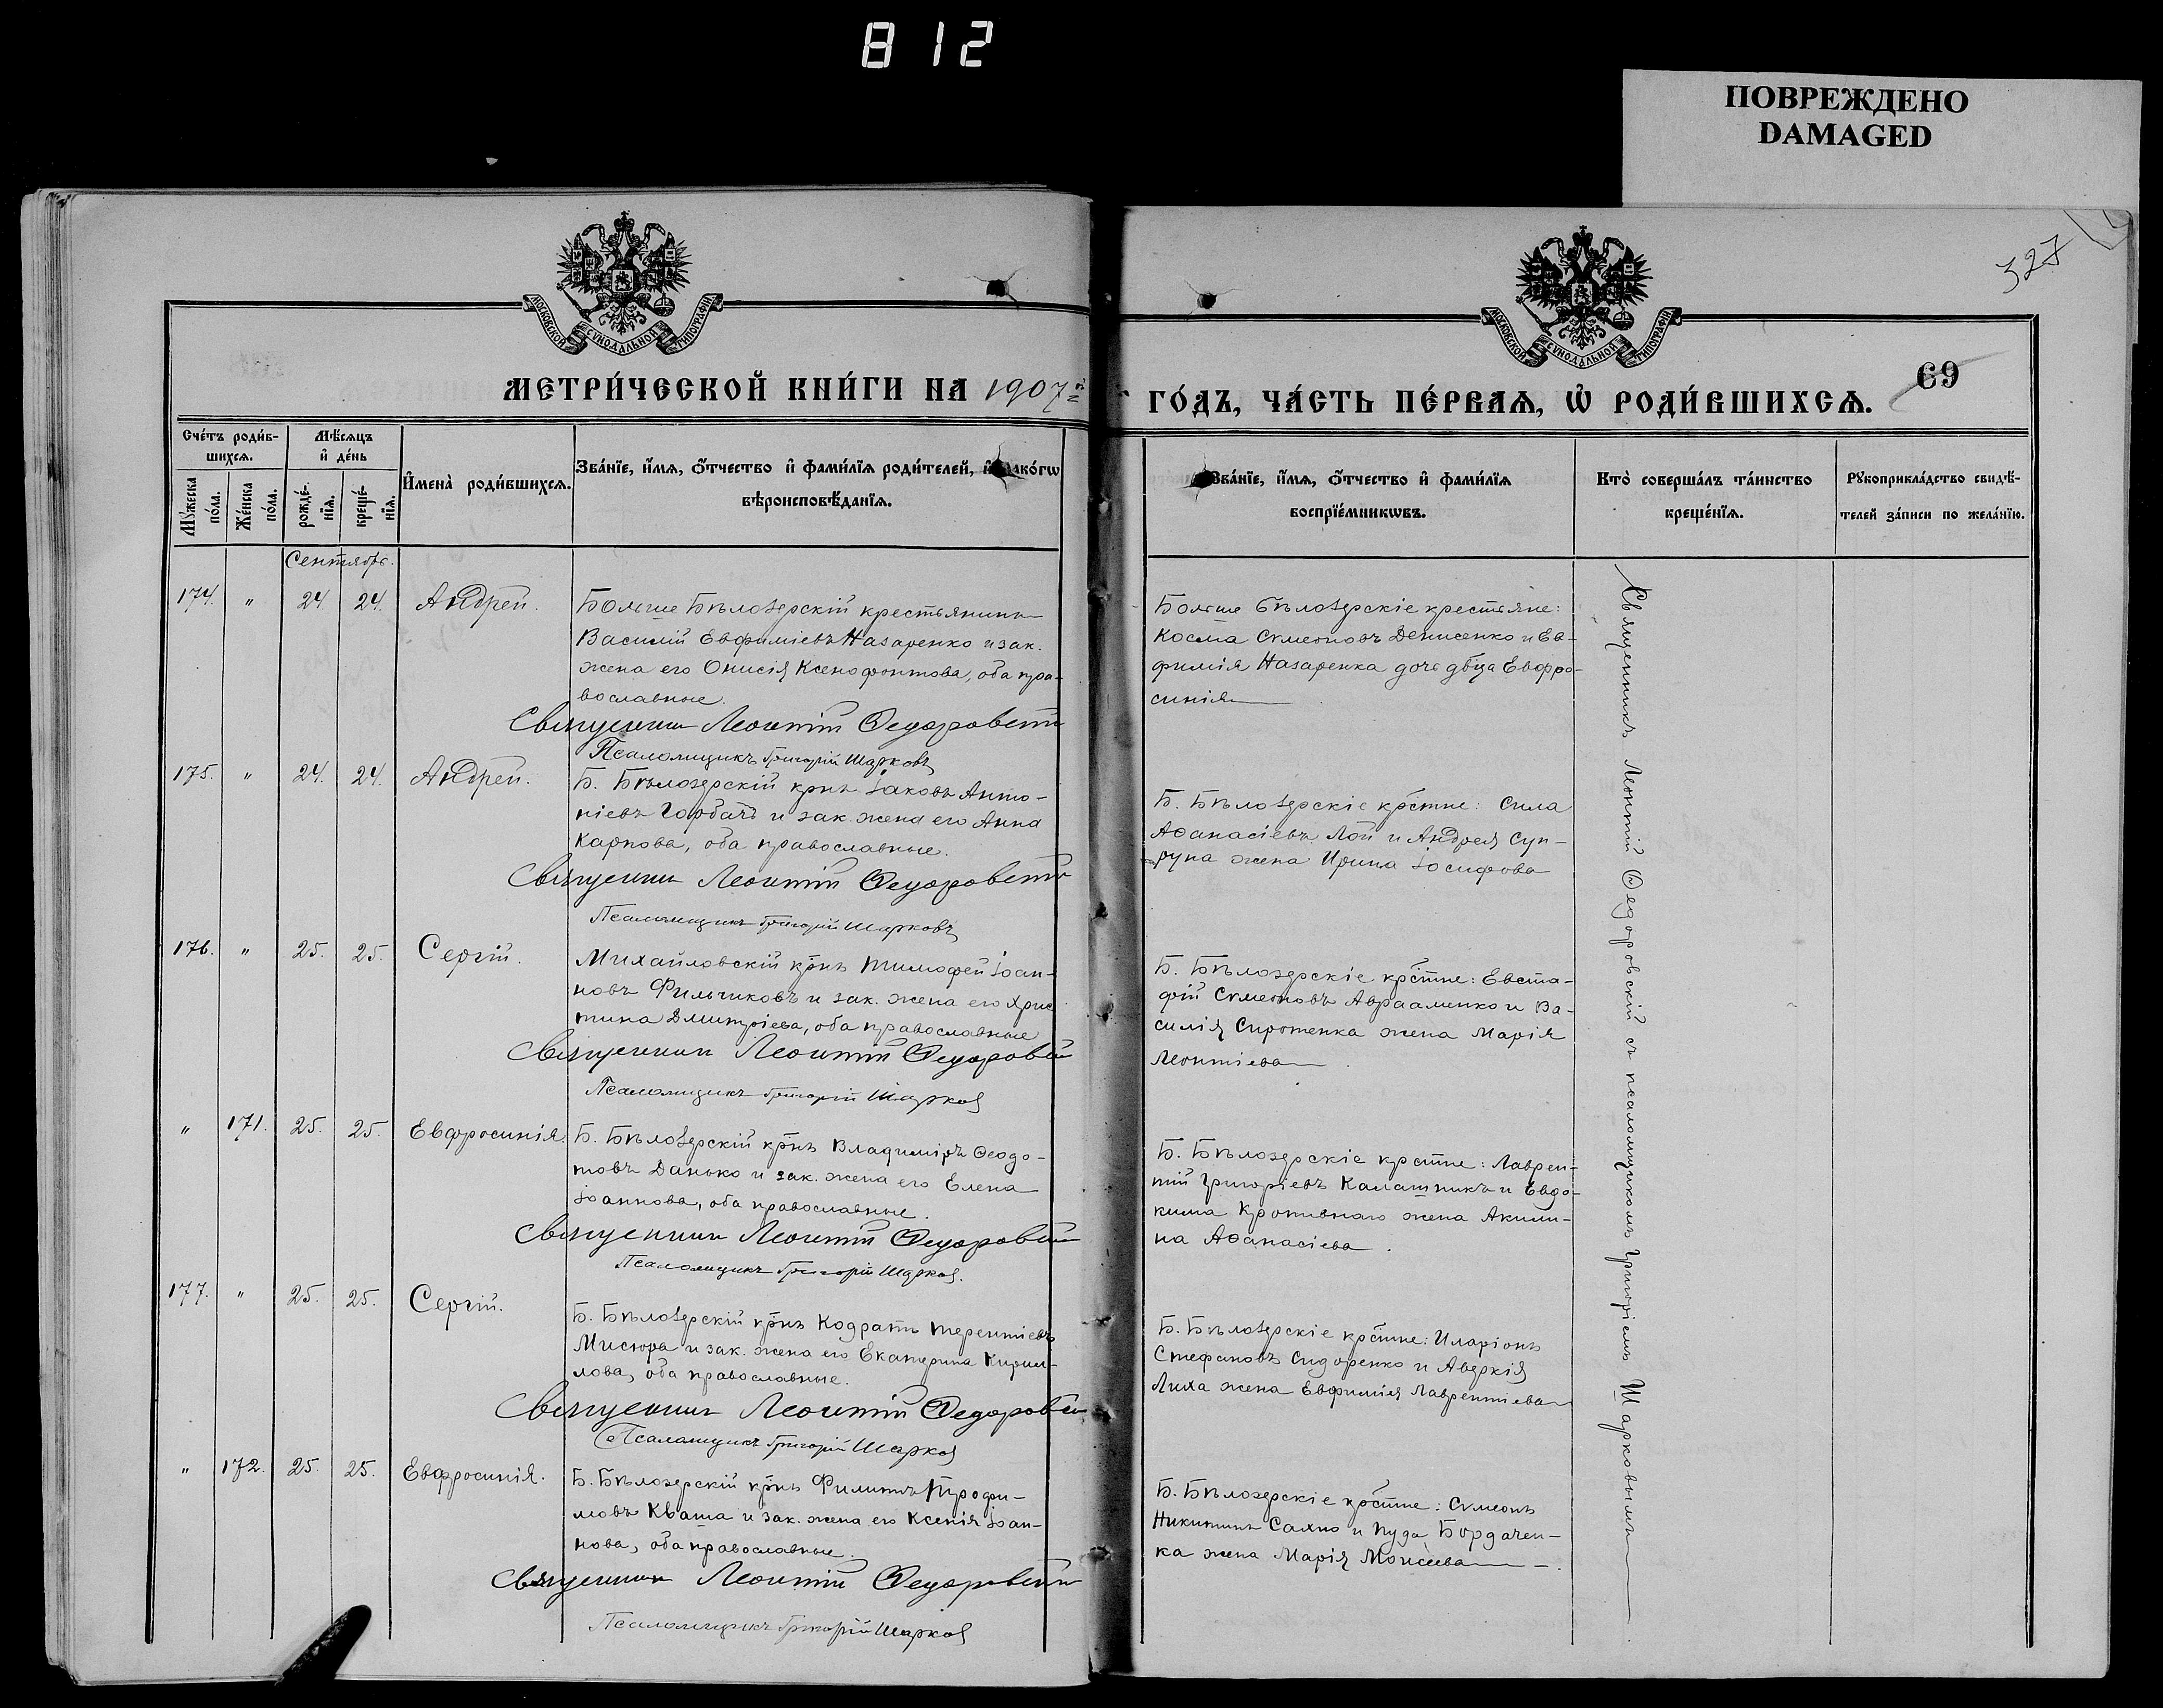 812
ПОВРЕЖДЕНО
DAMAGED
327
МОСКОВСКОЙ СѴНОДАЛЬНОЙ ТИПОГРАФІИ
МОСКОВСКОЙ СѴНОДАЛЬНОЙ ТИПОГРАФІИ
69
МЕТРИ́ЧЕСКОЙ КНИ́ГИ НА 1907й
ГО́ДЪ, ЧА́СТЬ ПЕ́РВАѦ, Ѡ҆ РОДИ́ВШИХСѦ.
Сче́тъ роди́в-
шихсѧ.
Мꙋ́жеска
по́ла.
Же́нска
по́ла.
Мѣ́сѧцъ
и҆ де́нь
рожде́-
нїѧ.
креще́-
нїѧ.
И҆мена̀ роди́вшихсѧ.
Зва́нїе, и҆́мѧ, ѻ҆́тчество и҆ фами́лїѧ роди́телей, и҆ како́гѡ
вѣроисповѣ́данїѧ.
Зва́нїе, и҆́мѧ, ѻ҆́тчество и҆ фами́лїѧ
воспрїе́мникѡвъ.
Кто̀ соверша́лъ та́инство
креще́нїѧ.
Рꙋкоприкла́дство свидѣ́-
телей за́писи по жела́нїю.
Сентябрь.
174. " 24. 24. Андрей.
Больше Бѣлозерскій крестьянинъ
Василій Евфиміевъ Назаренко и зак.
жена его Онисія Ксенофонтова, оба пра-
вославные.
Священник Леонтій Ѳедоровскій
Псаломщикъ Григорій Шарковъ
Больше Бѣлозерскіе крестьяне:
Косма Сѵмеоновъ Денисенко и Ев-
фимія Назаренка дочь дѣвца Евфро-
синія
175. " 24. 24. Андрей.
Б. Бѣлозерскій крнъ Іаковъ Анто-
ніевъ Горбачъ и зак. жена его Анна
Карпова, оба православные.
Священник Леонтій Ѳедоровскій
Псаломщикъ Григорій Шарковъ
Б. Бѣлозерскіе крстне: Сила
Аѳанасіевъ Лой и Андрея Суп-
руна жена Ирина Іосифова
176. " 25. 25. Сергій.
Михайловскій крнъ Тимофей Іоан-
новъ Фильчиковъ и зак. жена его Хрис
тина Дмитріева, оба православные
Священник Леонтій Ѳедоровскій
Псаломщикъ Григорій Шарков
Б. Бѣлозерскіе крстне: Евста-
фій Сѵмеоновъ Авраменко и Ва-
силія Сиротенка жена Марія
Леонтіева
" 171. 25. 25. Евфросинія.
Б. Бѣлозерскій крнъ Владиміръ Ѳеодо-
товъ Данько и зак. жена его Елена
Іоаннова, оба православные.
Священник Леонтій Ѳедоровскій
Псаломщикъ Григорій Шарков.
Б. Бѣлозерскіе крстне: Лаврен-
тій Григоріевъ Калашникъ и Евдо-
кима Кропивнаго жена Акили-
на Аѳанасіева.
177. " 25. 25. Сергій.
Б. Бѣлозерскій крнъ Кодратъ Терентіевъ
Мисюра и зак. жена его Екатерина Кирил-
лова, оба православные.
Священник Леонтій Ѳедоровскій
Псаломщикъ Григорій Шарков
Б. Бѣлозерскіе крстне: Иларіонъ
Стефановъ Сидоренко и Аверкія
Лиха жена Евфимія Лаврентіева
" 172. 25. 25. Евфросинія.
Б. Бѣлозерскій крнъ Филиппъ Трофи-
мовъ Кваша и зак. жена его Ксенія Іоан-
нова, оба православные.
Священник Леонтій Ѳедоровскій
Псаломщикъ Григорій Шарков
Б. Бѣлозерскіе крстне: Сѵмеонъ
Никитинъ Сахно и Іуда Бордачен-
ка жена Марія Моисеева
Священникъ Леонтій Ѳедоровскій съ псаломщикомъ Григоріемъ Шарковымъ